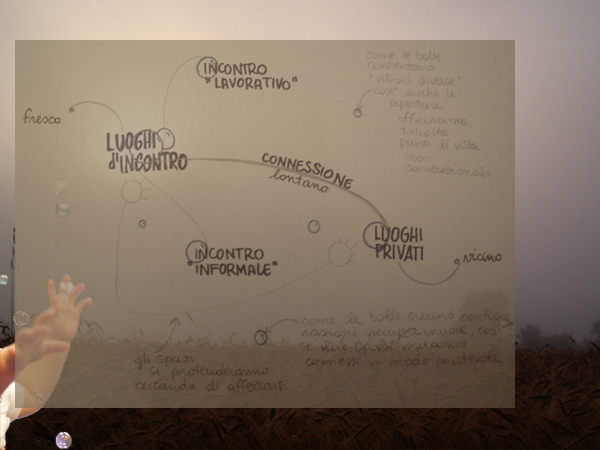 INCONTRO
"LAVORATIVO"
come le bolle
consentono
"visioni diverse"
così anche le
aperture
offriranno
talvolta
punti di vista
non
convenzionali
fresco
LUOGHI
d'INCONTRO
CONNESSIONE
lontano
LUOGHI
PRIVATI
vicino
INCONTRO
"INFORMALE"
come le bolle creano configu
razioni sempre nuove, così
i vari spazi saranno
connessi in modo mutevole
gli spazi
si protenderanno
cercando di afferrarsi